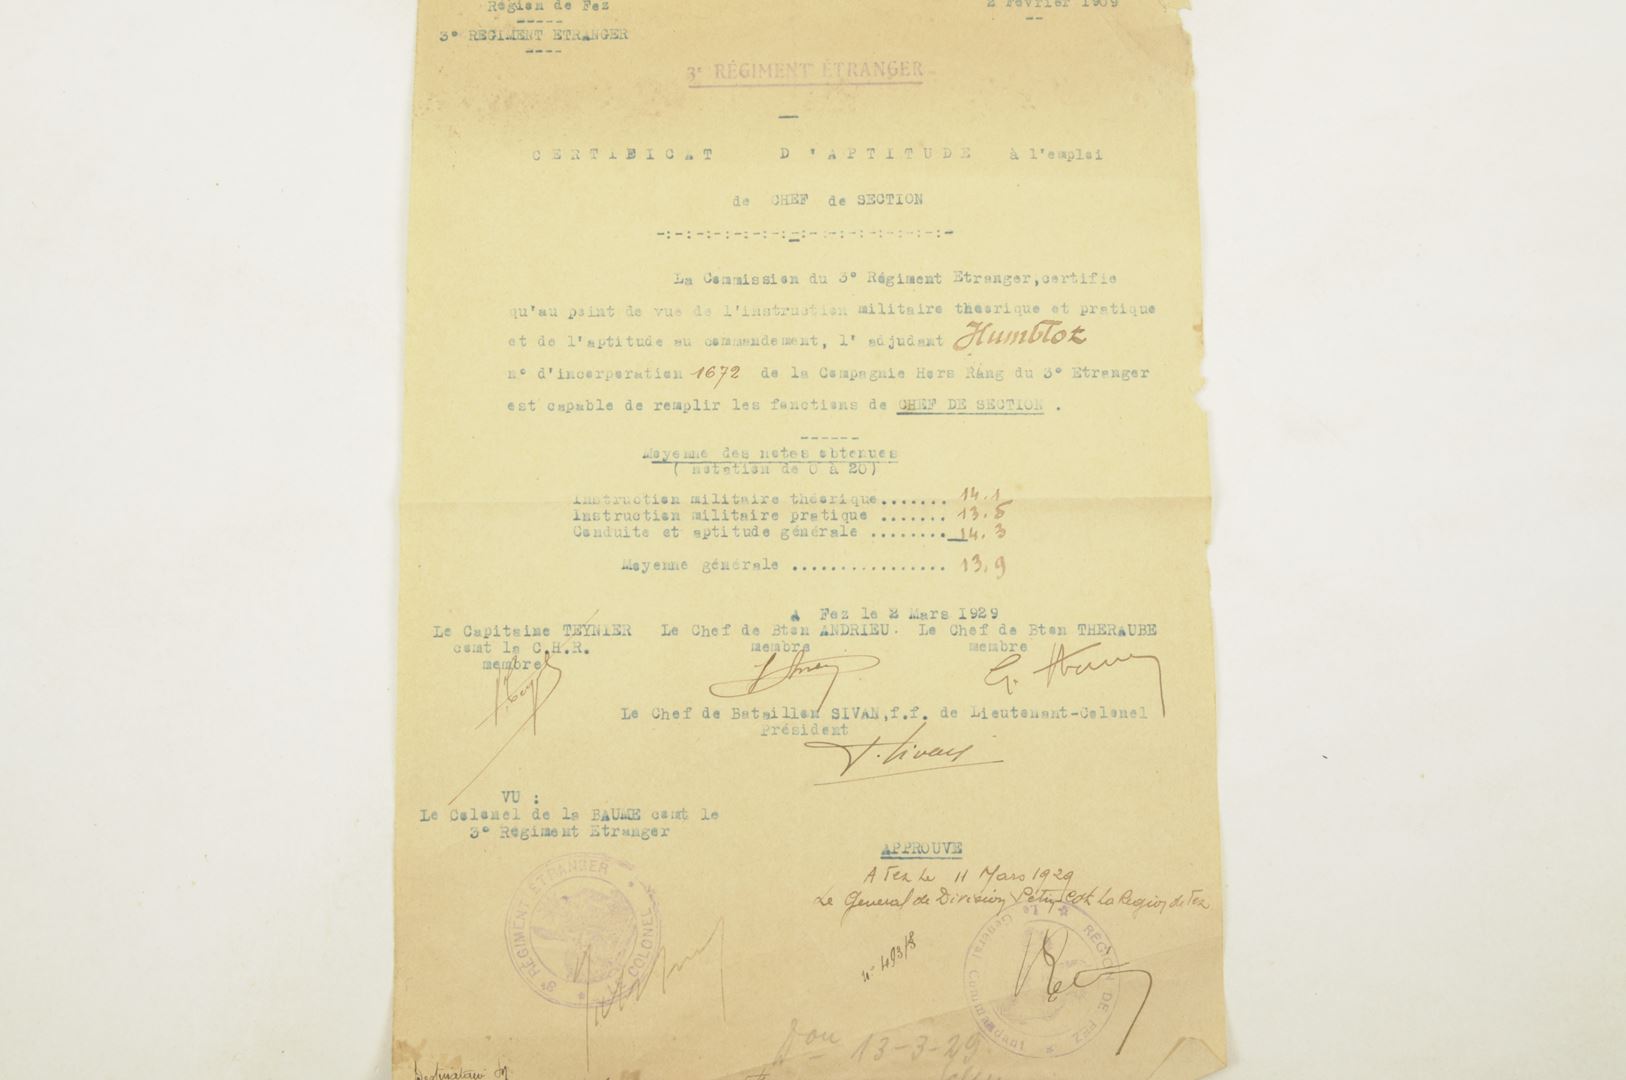 Région de Fez
2 Février 1909
3° REGIMENT ETRANGER
3e RÉGIMENT ÉTRANGER
CERTIFICAT D'APTITUDE à l'emploi
de CHEF de SECTION
La Commission du 3° Régiment Etranger, certifie
qu'au point de vue de l'instruction militaire théorique et pratique
et de l'aptitude au commandement, l' adjudant Humblot
n° d'incorporation 1672 de la Compagnie Hors Rang du 3° Etranger
est capable de remplir les fonctions de CHEF DE SECTION .
Moyenne des notes obtenues
( notation de 0 à 20)
Instruction militaire théorique....... 14.1
Instruction militaire pratique ....... 13.5
Conduite et aptitude générale ........ 14.3
Moyenne générale ................ 13.9
A Fez le 2 Mars 1929
Le Capitaine TEYNIER Le Chef de Bton ANDRIEU. Le Chef de Bton THERAUBE
comt la C.H.R. membre membre
membre
Le Chef de Bataillon SIVAN,f.f. de Lieutenant-Colonel
Président
VU :
Le Colonel de la BAUME comt le
3° Régiment Etranger
APPROUVE
A Fez Le 11 Mars 1929
Le General de Division Pétin Cdt La Region de Fez
3e RÉGIMENT ÉTRANGER * LE COLONEL *
* RÉGION DE FEZ * Le Général Commandant
n° 493/S
13-3-29
Destinataire